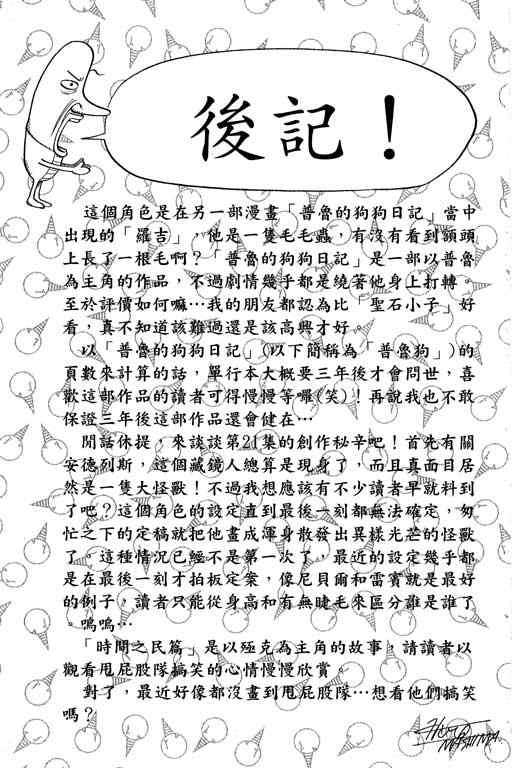 後記！
這個角色是在另一部漫畫「普魯的狗狗日記」當中
出現的「羅吉」，他是一隻毛毛蟲，有沒有看到額頭
上長了一根毛啊？「普魯的狗狗日記」是一部以普魯
為主角的作品，不過劇情幾乎都是繞著他身上打轉。
至於評價如何嘛…我的朋友都認為比「聖石小子」好
看，真不知道該難過還是該高興才好。
以「普魯的狗狗日記」(以下簡稱為「普魯狗」)的
頁數來計算的話，單行本大概要三年後才會問世，喜
歡這部作品的讀者可得慢慢等囉(笑)！再說我也不敢
保證三年後這部作品還會健在…
閒話休提，來談談第21集的創作秘辛吧！首先有關
安德列斯，這個藏鏡人總算是現身了，而且真面目居
然是一隻大怪獸！不過我想應該有不少讀者早就料到
了吧？這個角色的設定直到最後一刻都無法確定，匆
忙之下的定稿就把他畫成渾身散發出異樣光芒的怪獸
了。這種情況已經不是第一次了，最近的設定幾乎都
是在最後一刻才拍板定案，像尼貝爾和雷賓就是最好
的例子，讀者只能從身高和有無睫毛來區分誰是誰了
。嗚嗚…
「時間之民篇」是以殛克為主角的故事，請讀者以
觀看甩屁股隊搞笑的心情慢慢欣賞。
對了，最近好像都沒畫到甩屁股隊…想看他們搞笑
嗎？
HIRO MASHIMA